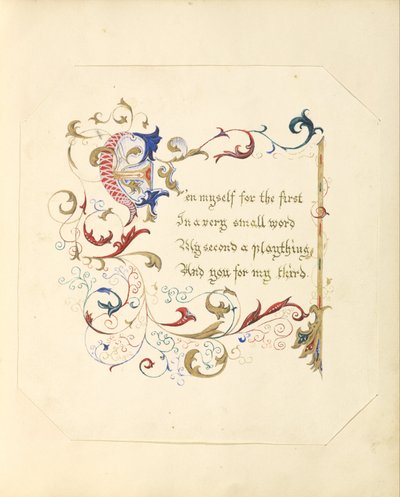 E'en myself for the first
In a very small word
My second a plaything
And you for my third.